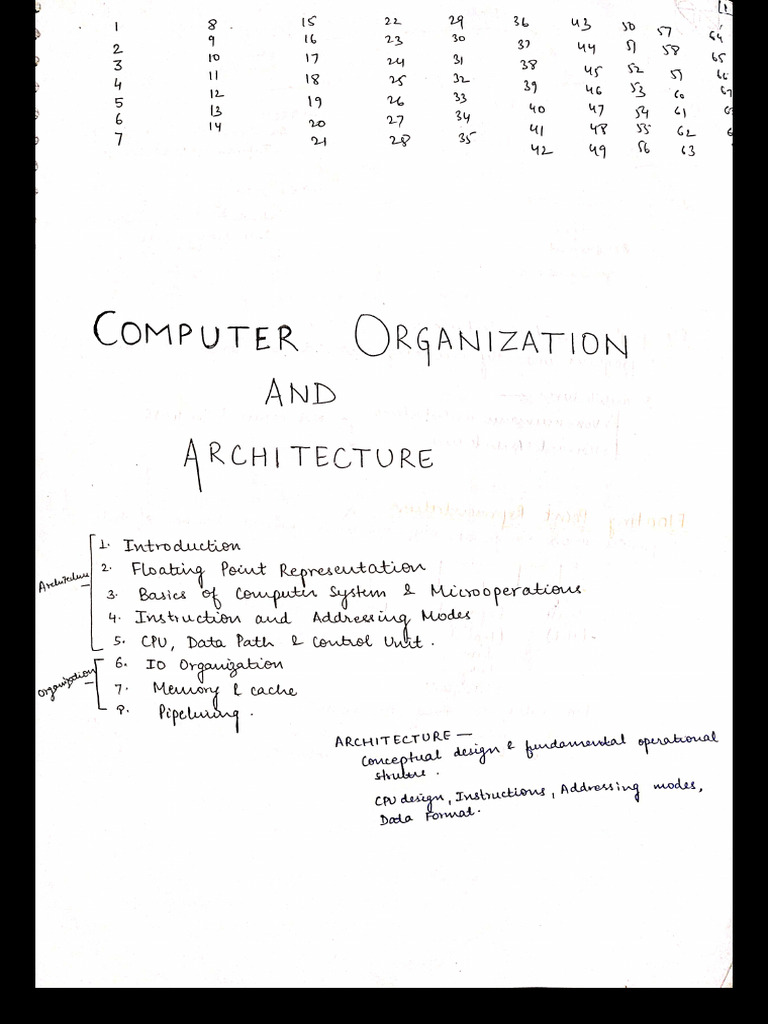 1 8 15 22 29 36 43 50 57 64
2 9 16 23 30 37 44 51 58 65
3 10 17 24 31 38 45 52 59 66
4 11 18 25 32 39 46 53 60
5 12 19 26 33 40 47 54 61
6 13 20 27 34 41 48 55 62
7 14 21 28 35 42 49 56 63
COMPUTER ORGANIZATION
AND
ARCHITECTURE
Architecture
1. Introduction
2. Floating Point Representation
3. Basics of Computer System & Microoperations
4. Instruction and Addressing Modes
5. CPU, Data Path & Control Unit.
Organization
6. IO Organization
7. Memory & cache
8. Pipelining.
ARCHITECTURE —
Conceptual design & fundamental operational
struture.
CPU design, Instructions, Addressing modes,
Data Format.